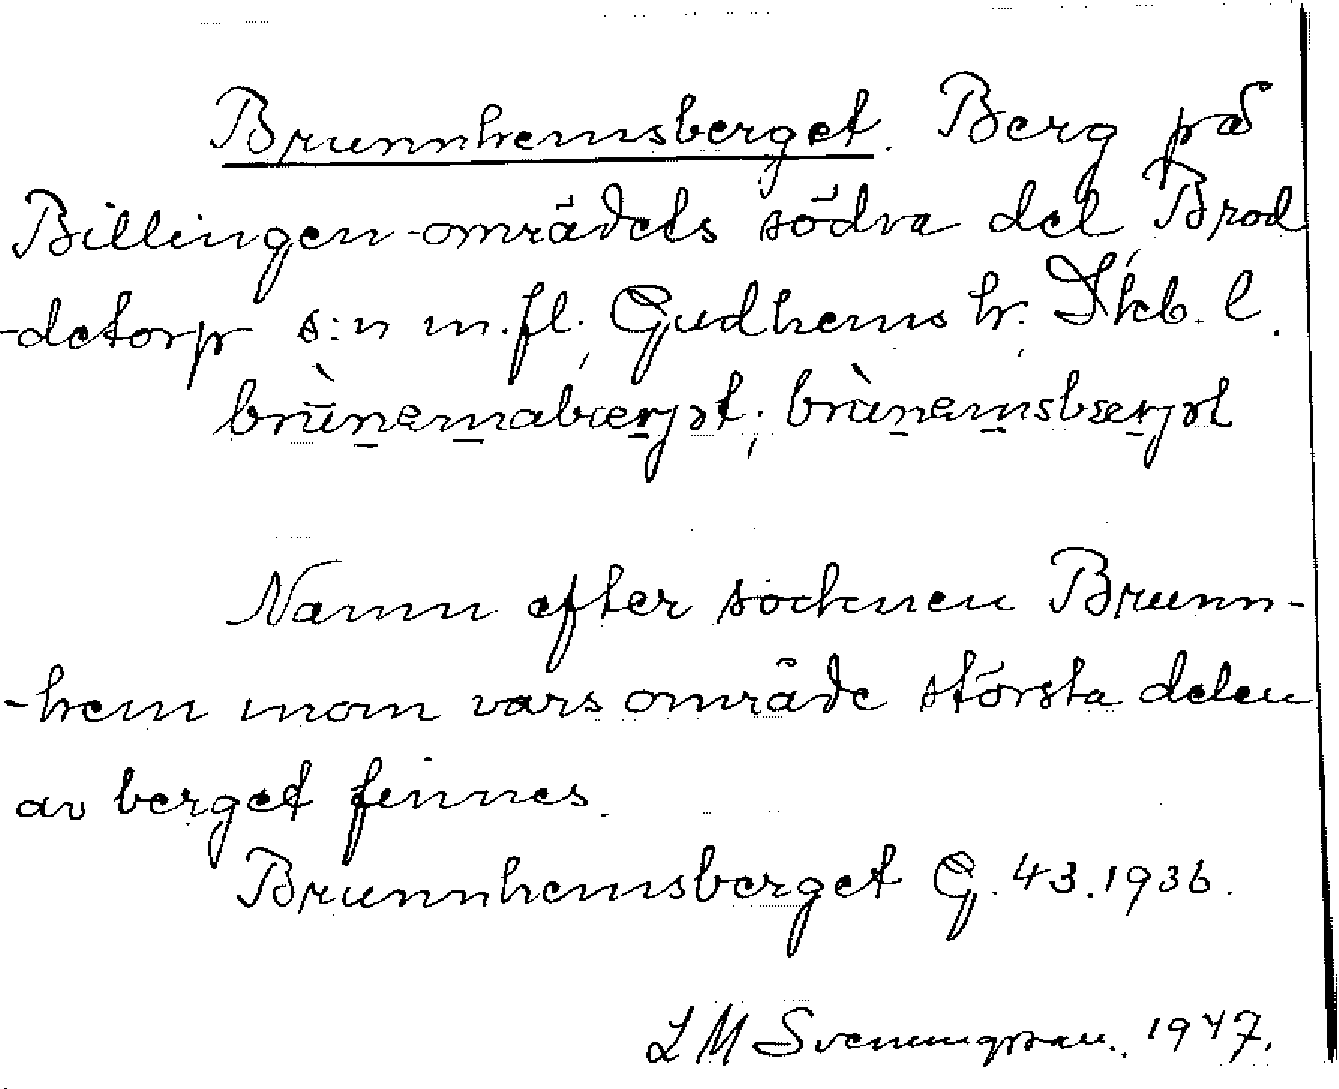 Brunnhemsberget. Berg på
Billingen-områdets södra del, Brod
-detorp s:n m.fl., Gudhems hr. Skb. l.
Namn efter socknen Brunn-
-hem inom vars område största delen
av berget finnes.
Brunnhemsberget G. 43. 1936.
L M Svenungsson. 1947.